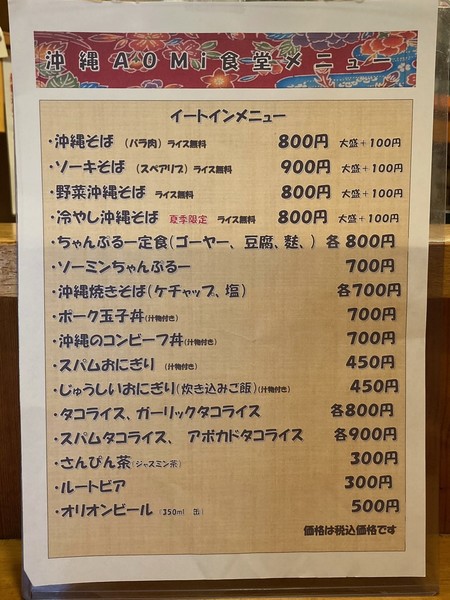 沖縄AOMi食堂メニュー
イートインメニュー
・沖縄そば （バラ肉） ライス無料 800円 大盛＋100円
・ソーキそば （スペアリブ） ライス無料 900円 大盛＋100円
・野菜沖縄そば ライス無料 800円 大盛＋100円
・冷やし沖縄そば 夏季限定 ライス無料 800円 大盛＋100円
・ちゃんぷるー定食（ゴーヤー、豆腐、麩、） 各800円
・ソーミンちゃんぷるー 700円
・沖縄焼きそば（ケチャップ、塩） 各700円
・ポーク玉子丼（汁物付き） 700円
・沖縄のコンビーフ丼（汁物付き） 700円
・スパムおにぎり （汁物付き） 450円
・じゅうしいおにぎり（炊き込みご飯）（汁物付き） 450円
・タコライス、ガーリックタコライス 各800円
・スパムタコライス、 アボカドタコライス 各900円
・さんぴん茶（ジャスミン茶） 300円
・ルートビア 300円
・オリオンビール （350ml 缶） 500円
価格は税込価格です